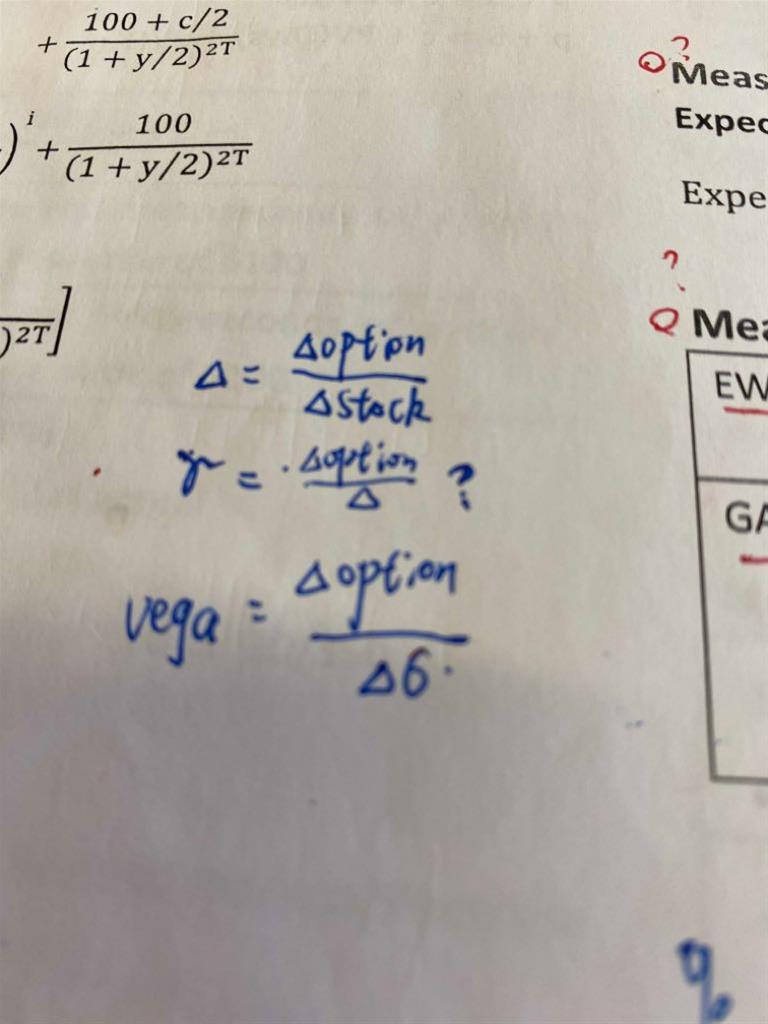 + 100 + c/2 / (1 + y/2)^2T
)^i + 100 / (1 + y/2)^2T
)^2T]
Δ = Δoption / Δstock
γ = Δoption / Δ ?
vega = Δoption / Δσ
?
Meas
Expec
Expe
?
Mea
EW
GA
%